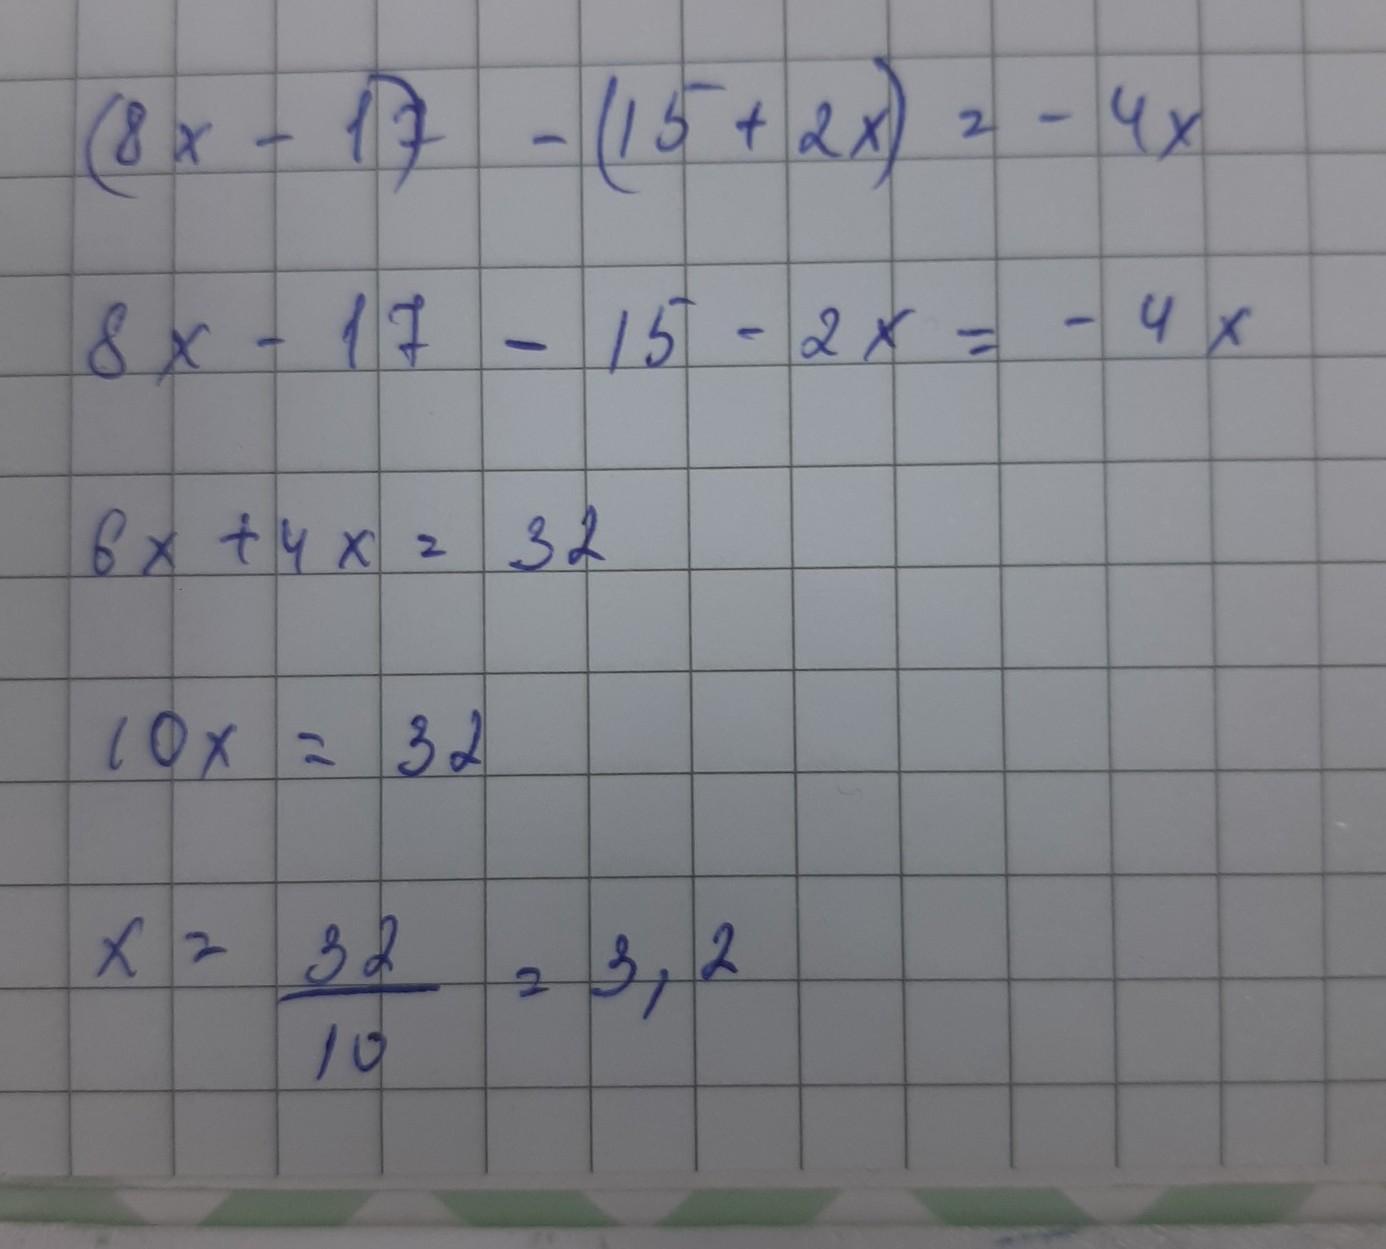 (8x - 17) - (15 + 2x) = - 4x
8x - 17 - 15 - 2x = - 4x
6x + 4x = 32
10x = 32
x = 32/10 = 3,2